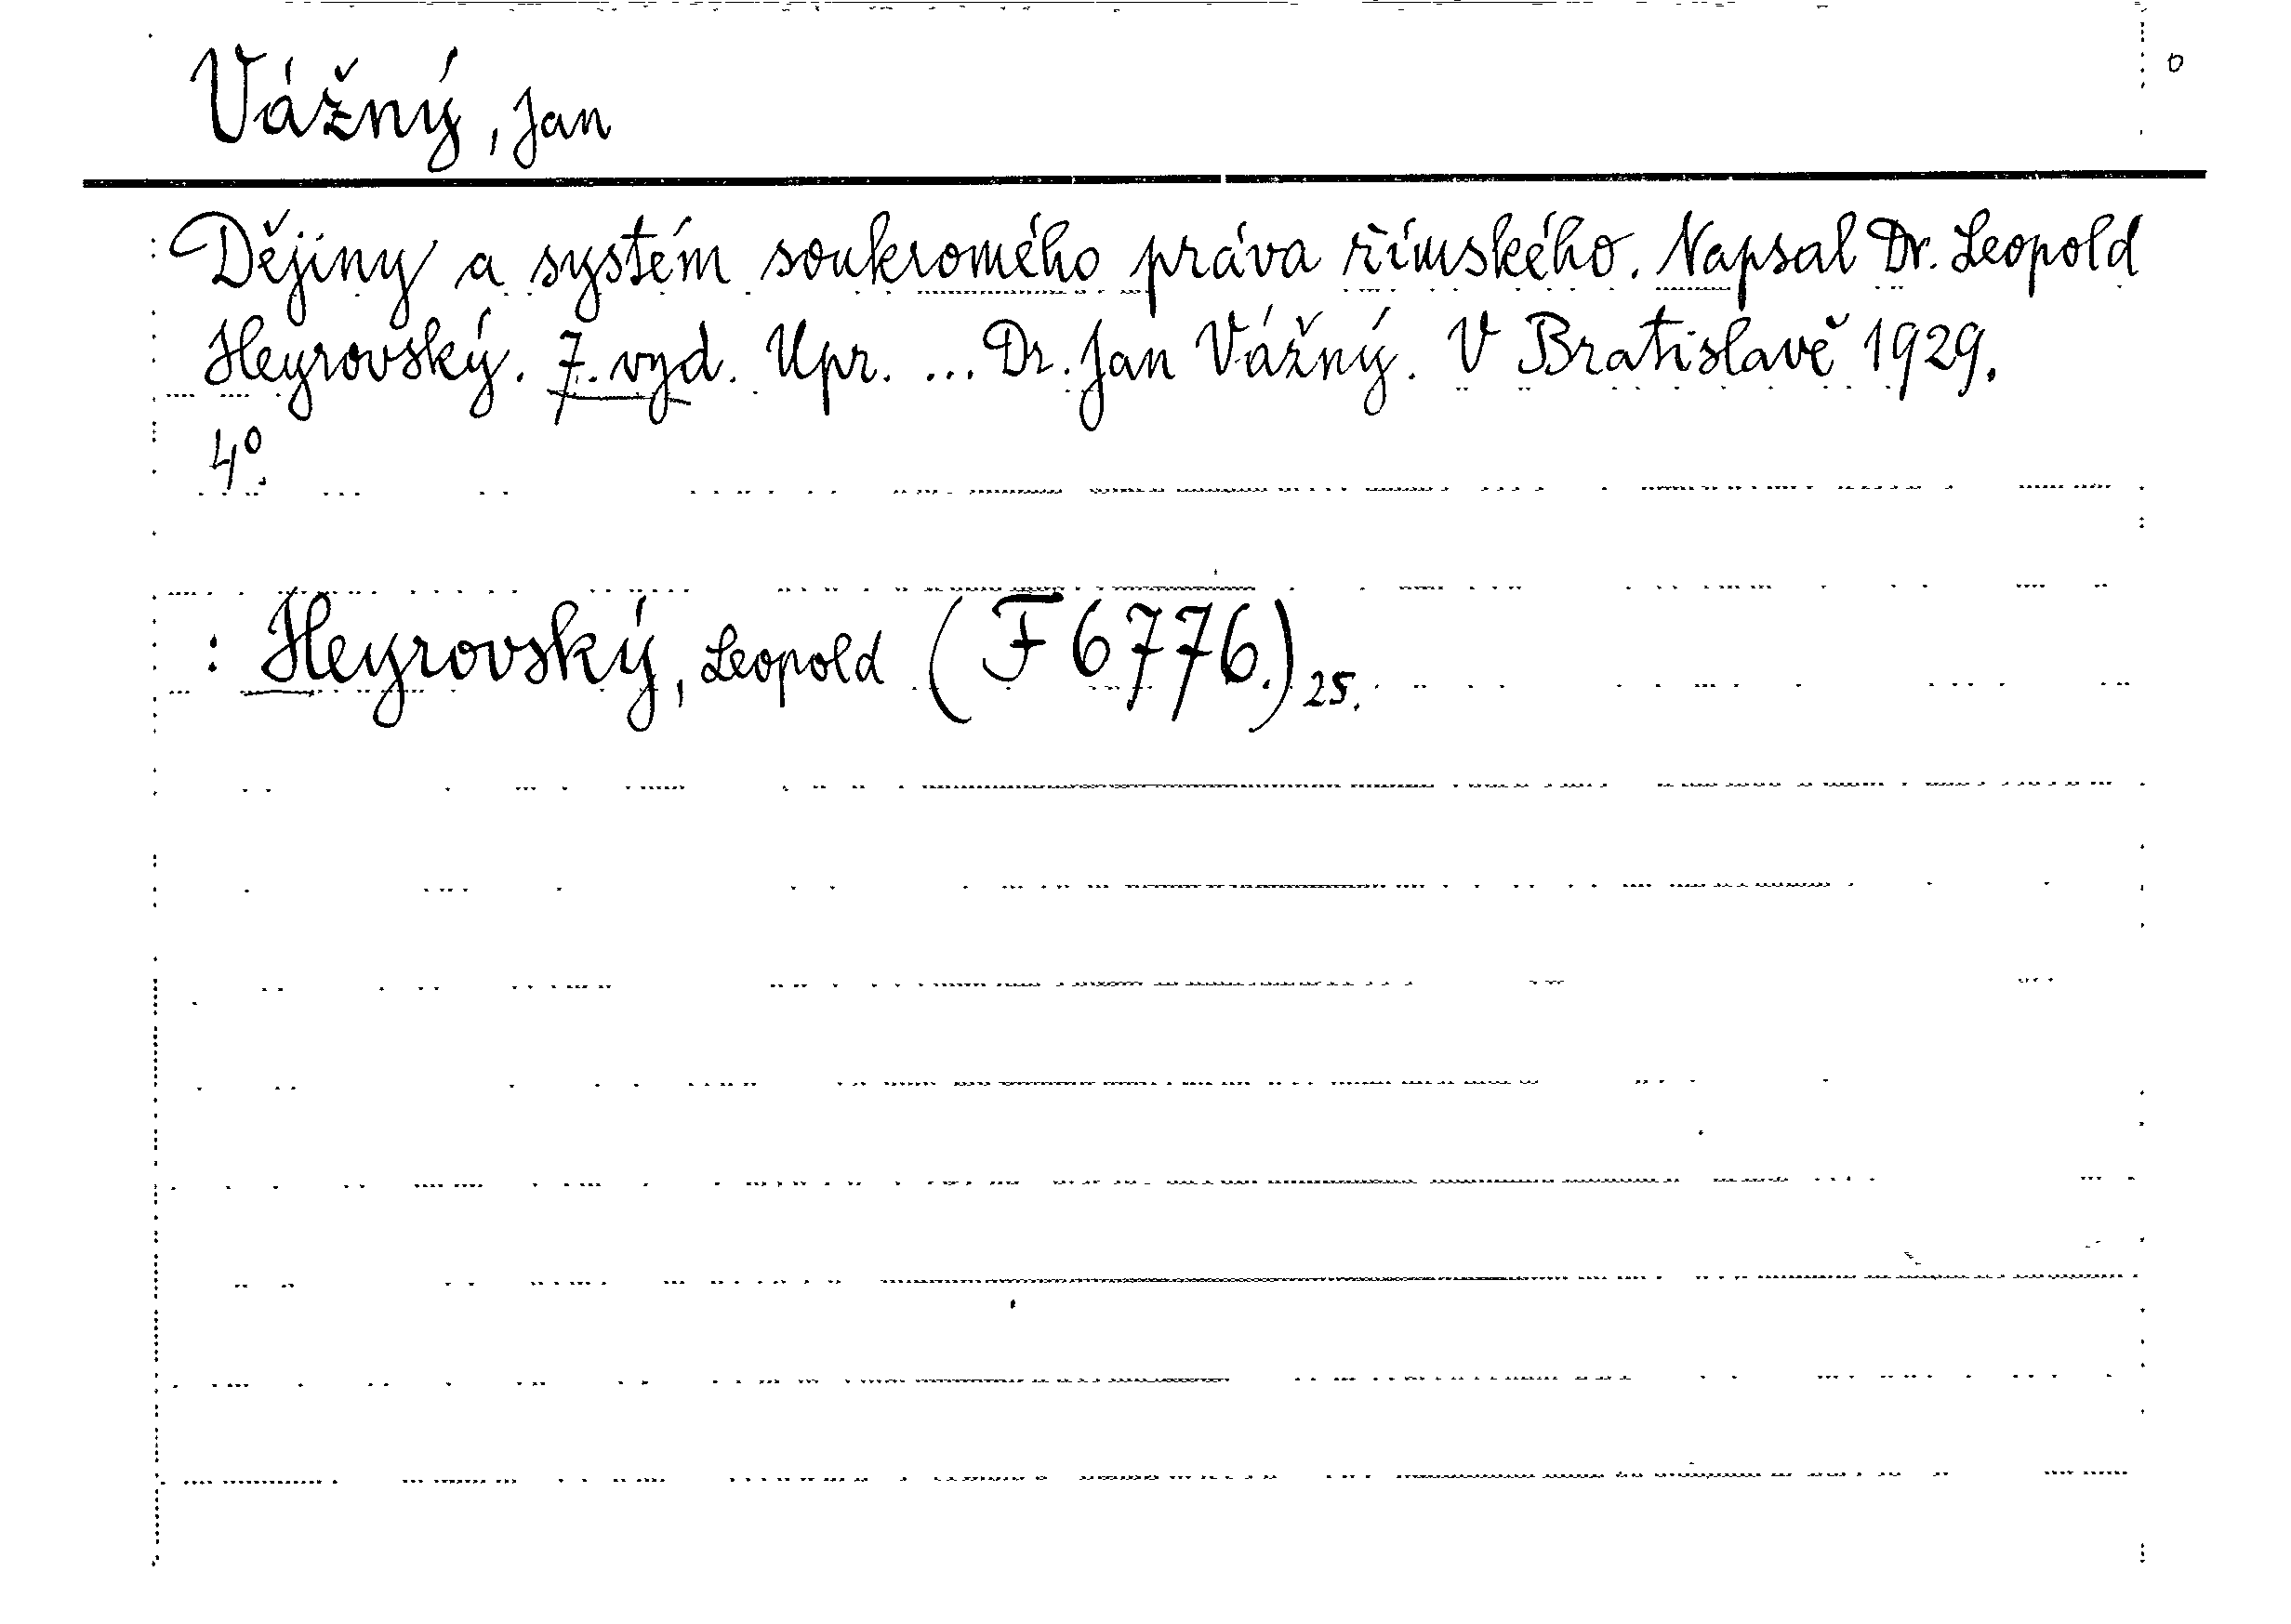 Vážný, Jan
o
Dějiny a systém soukromého práva římského. Napsal Dr. Leopold
Heyrovský. 7. vyd. Upr. ... Dr. Jan Vážný. V Bratislavě 1929.
4°.
: Heyrovský, Leopold (F 6776.) 25.